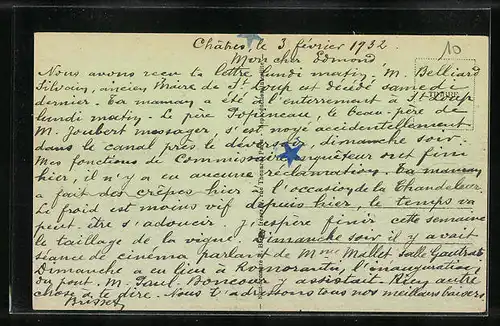 Châtres, le 3 février 1932
10
Mon cher Edmond
Nous avons reçu ta lettre lundi matin. M. Belliard
Silvain, ancien Maire de St Loup est décédé samedi
dernier. Ta maman a été à l'enterrement à St Loup
lundi matin. Le père Popineau, le beau-père de
M. Joubert messager s'est noyé accidentellement
dans le canal près le déversoir dimanche soir.
Mes fonctions de Commissaire enquêteur ont fini
hier, il n'y a eu aucune réclamation. Ta maman
a fait des crêpes hier à l'occasion de la Chandeleur
Le froid est moins vif depuis hier, le temps va
peut être s'adoucir. J'espère finir cette semaine
le taillage de la vigne. Dimanche soir il y avait
séance de cinéma parlant de Mme Mallet Salle Gautrat
Dimanche a eu lieu à Romorantin, l'inauguration
du pont. M. Paul Boncour y assistait. Rien autre
chose à te dire. Nous t'adressons tous nos meilleurs baisers